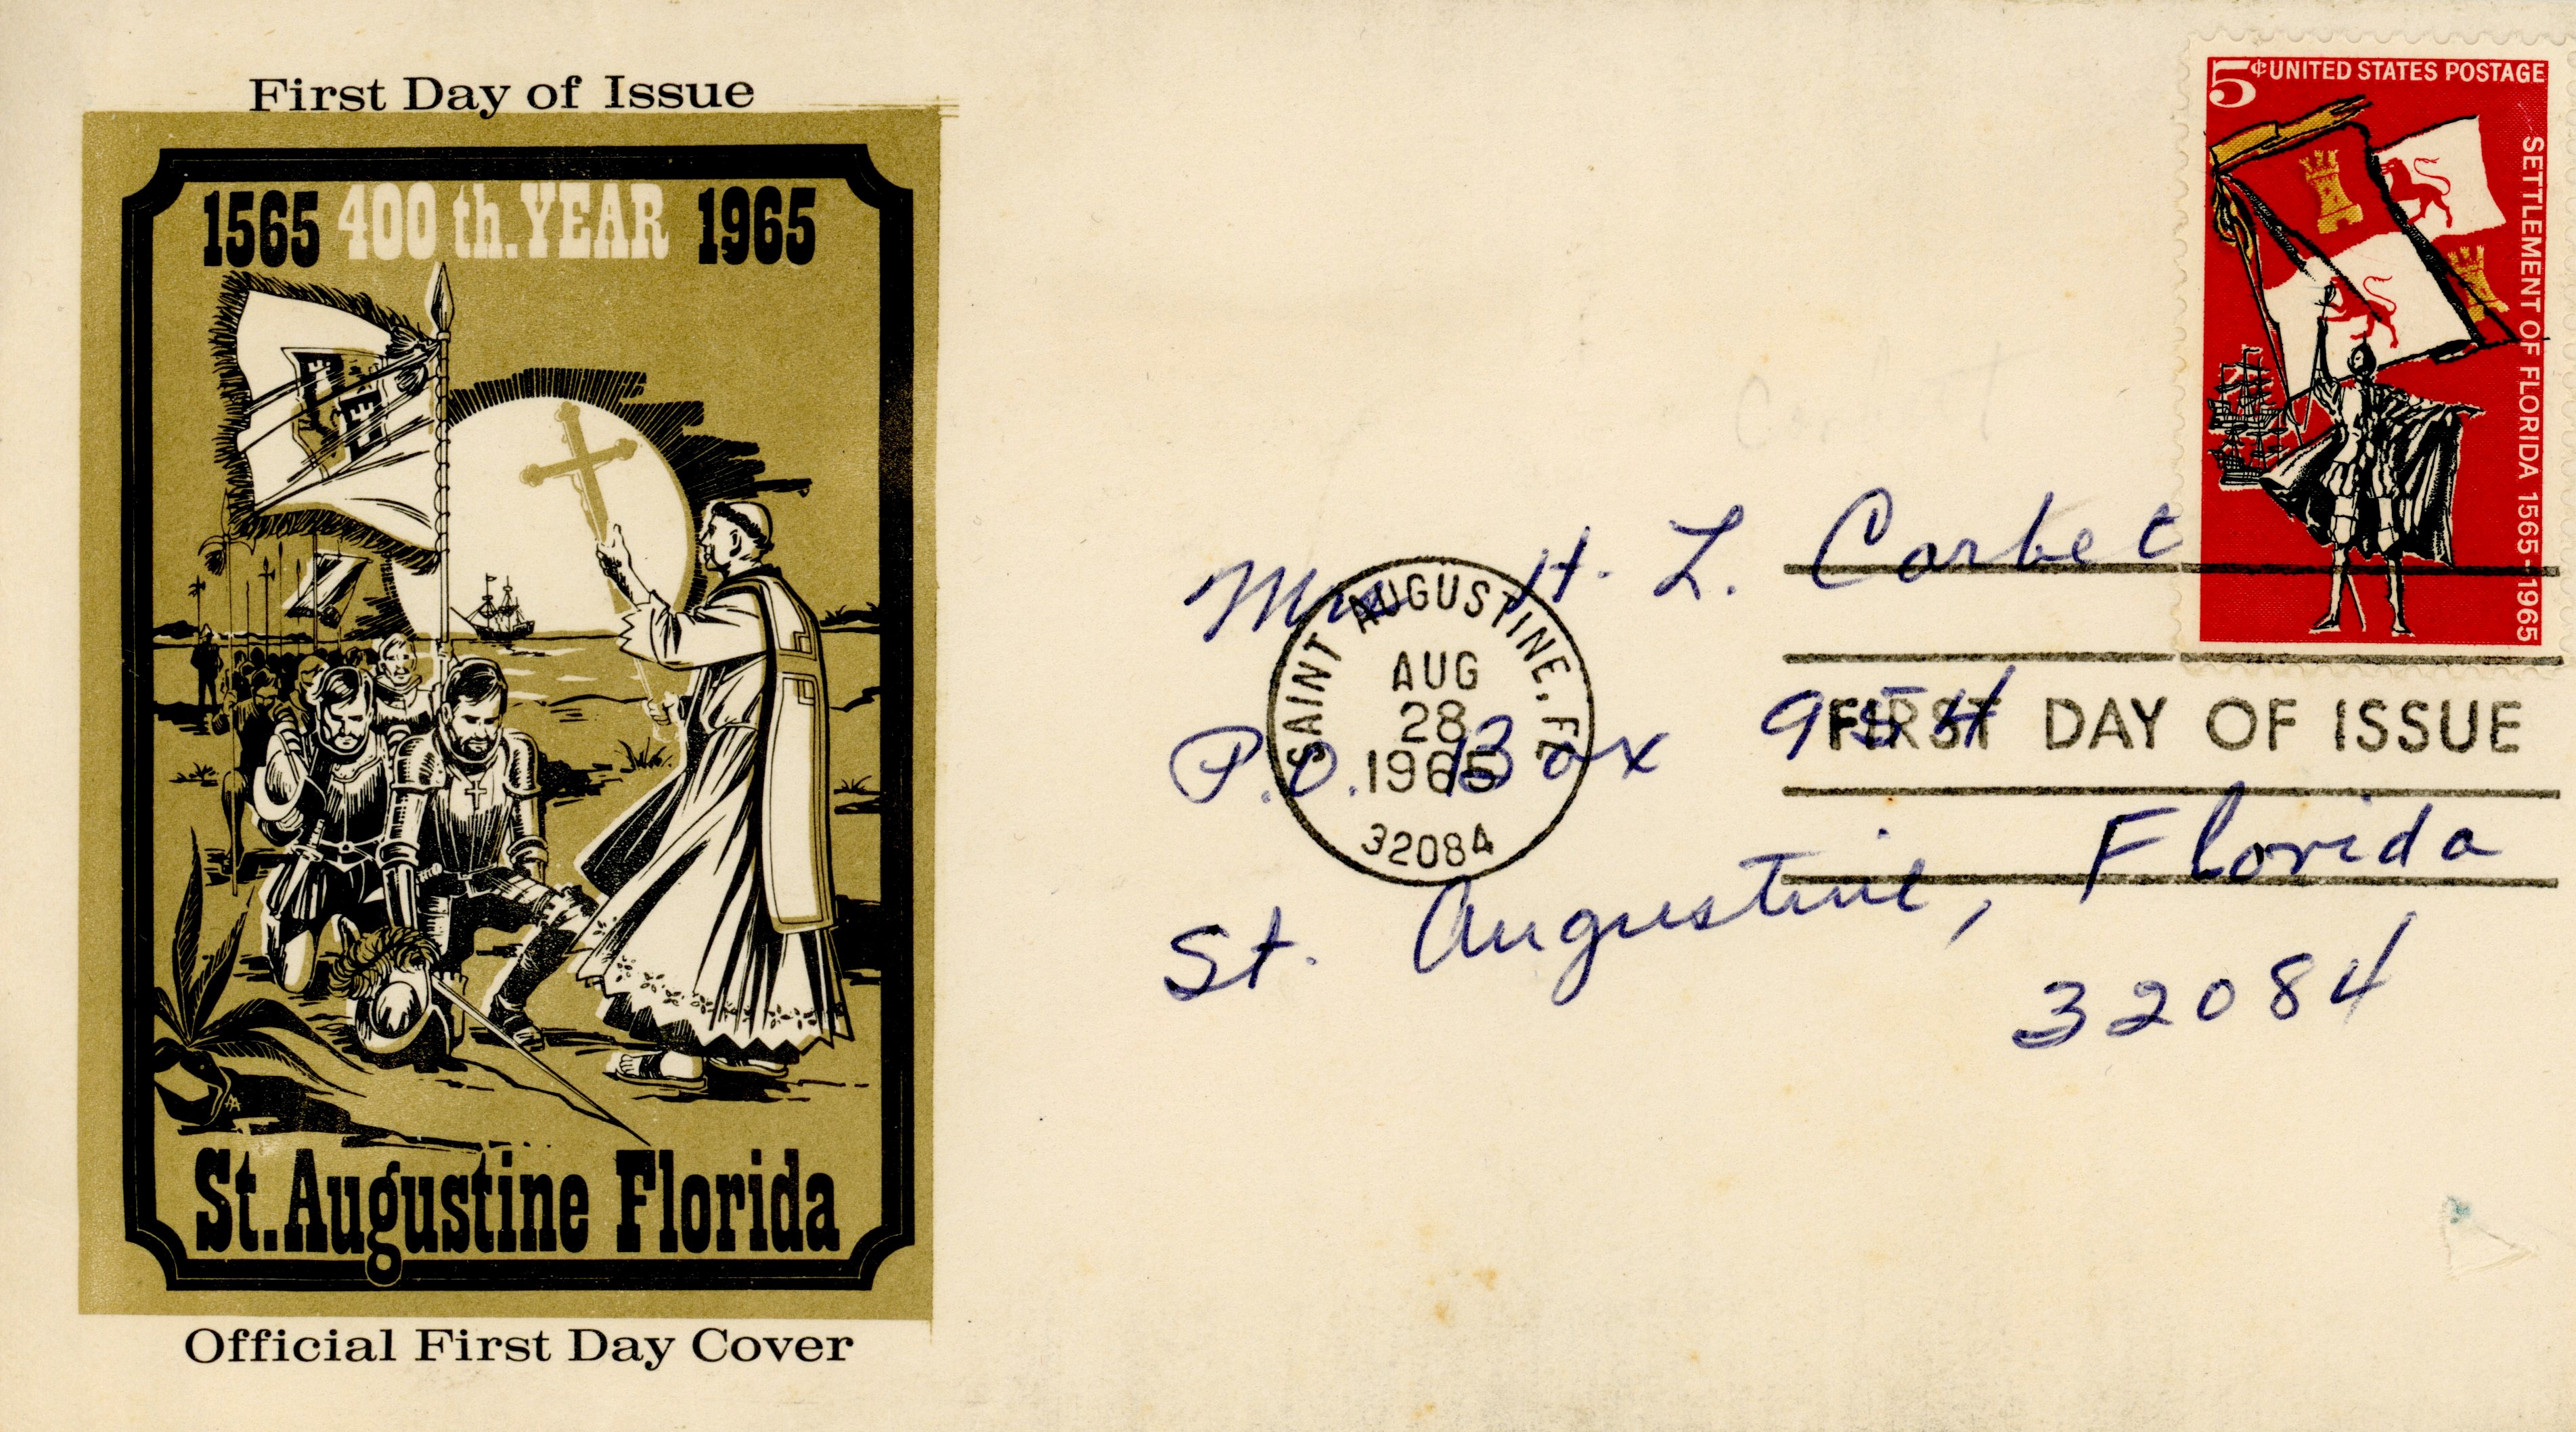 First Day of Issue
1565 400 th. YEAR 1965
St. Augustine Florida
Official First Day Cover
5¢ UNITED STATES POSTAGE
SETTLEMENT OF FLORIDA 1565-1965
SAINT AUGUSTINE, FL
AUG
28
1965
32084
FIRST DAY OF ISSUE
H. L. Corbet
P.O. Box 954
St. Augustine, Florida
32084